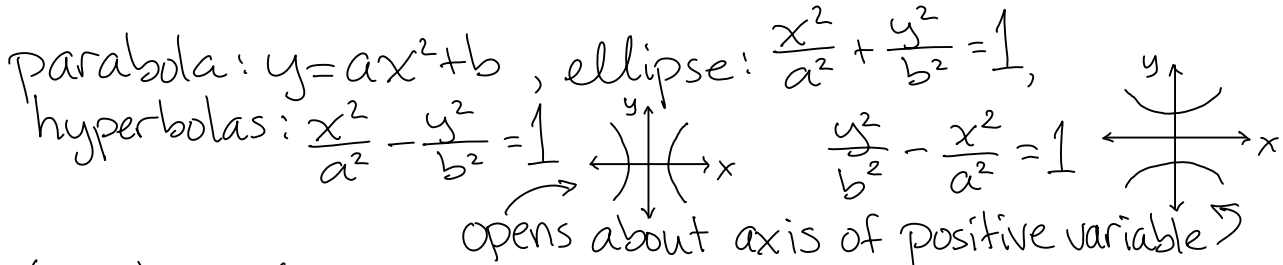 parabola: y=ax²+b , ellipse: x²/a² + y²/b² =1,
hyperbolas: x²/a² − y²/b² =1 y x y²/b² − x²/a² =1 y x
opens about axis of positive variable